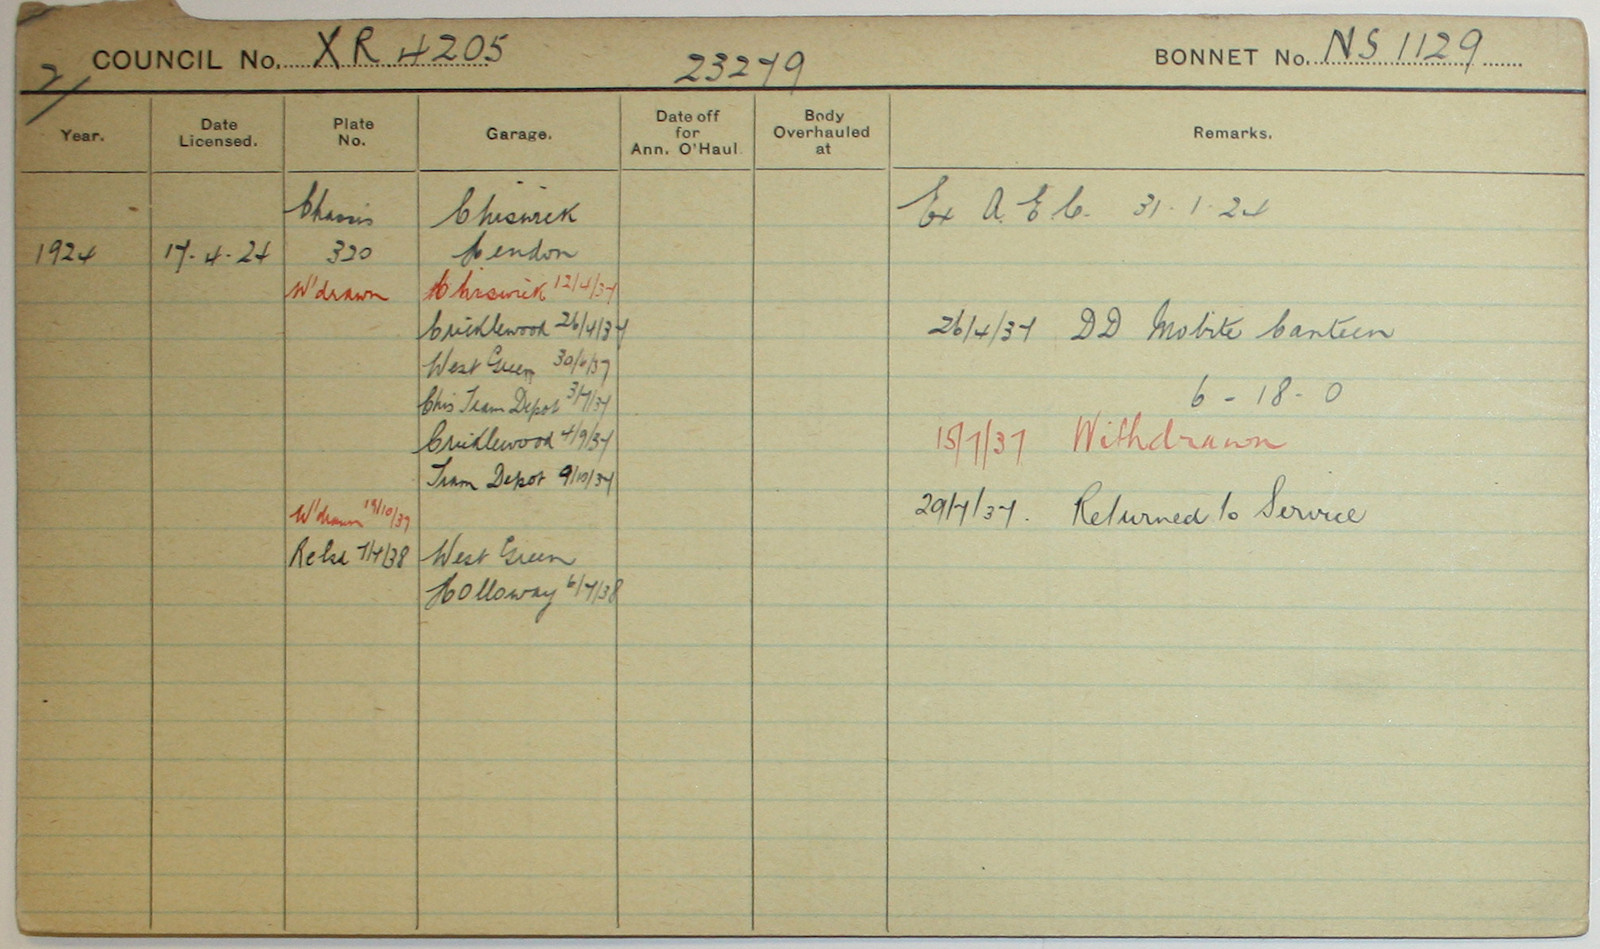 COUNCIL No. XR 4205 23279 BONNET No. NS 1129
2/
Year. Date Licensed. Plate No. Garage. Date off for Ann. O'Haul. Body Overhauled at Remarks.
Chassis Chiswick Ex A.E.C. 31-1-24
1924 17-4-24 320 Hendon
W'drawn Chiswick 12/4/37
Cricklewood 26/4/37 26/4/37 DD Mobile Canteen
West Green 30/6/37
Chis Tram Depot 3/7/37 6 - 18 - 0
Cricklewood 4/9/37 15/7/37 Withdrawn
Tram Depot 9/10/37
W'drawn 19/10/37 29/7/37. Returned to Service
Relsd 7/4/38 West Green
Holloway 6/7/38